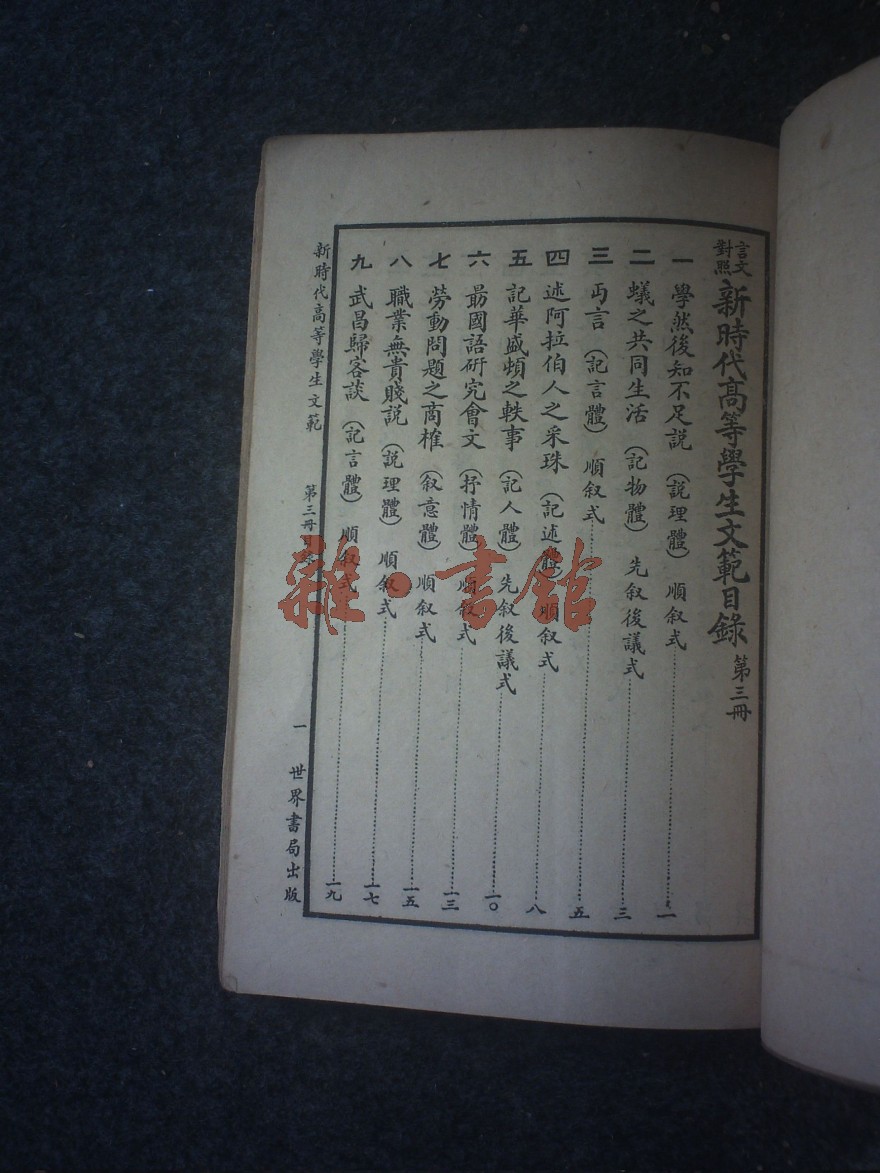 言文對照 新時代高等學生文範目錄 第三冊
一 學然後知不足説 (説理體) 順叙式 一
二 蟻之共同生活 (記物體) 先叙後議式 三
三 丐言 (記言體) 順叙式 五
四 述阿拉伯人之采珠 (記述體) 順叙式 八
五 記華盛頓之軼事 (記人體) 先叙後議式 一〇
六 勗國語研究會文 (抒情體) 順叙式 一三
七 勞動問題之商榷 (叙意體) 順叙式 一五
八 職業無貴賤説 (説理體) 順叙式 一七
九 武昌歸客談 (記言體) 順叙式 一九
新時代高等學生文範 第三冊目錄 一 世界書局出版
雜·書館